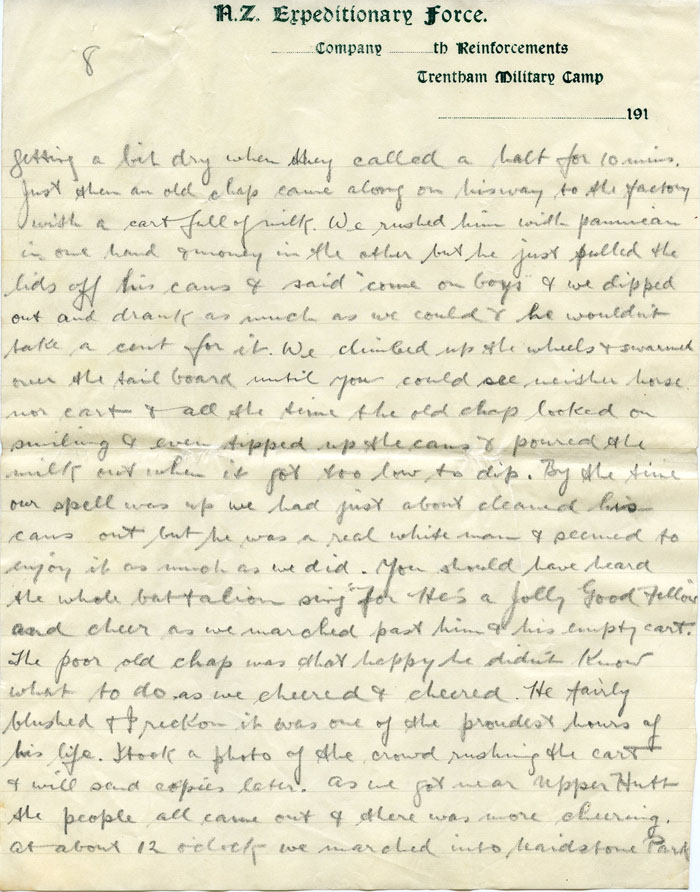 N.Z. Expeditionary Force.
8
Company th Reinforcements
Trentham Military Camp
191
getting a bit dry when they called a halt for 10 mins.
Just then an old chap came along on his way to the factory
with a cart full of milk. We rushed him with pannican
in one hand & money in the other but he just pulled the
lids off his cans & said "come on boys" & we dipped
out and drank as much as we could & he wouldn't
take a cent for it. We climbed up the wheels & swarmed
over the tail board until you could see neither horse
nor cart & all the time the old chap looked on
smiling & even tipped up the cans & poured the
milk out when it got too low to dip. By the time
our spell was up we had just about cleaned his
cans out but he was a real white man & seemed to
enjoy it as much as we did. You should have heard
the whole battalion sing "for He's a Jolly Good Fellow
and cheer as we marched past him & his empty cart.
The poor old chap was that happy he didn't know
what to do as we cheered & cheered. He fairly
blushed & I reckon it was one of the proudest hours of
his life. I took a photo of the crowd rushing the cart
& will send copies later. As we got near Upper Hutt
the people all came out & there was more cheering.
At about 12 o'clock we marched into Maidstone Park